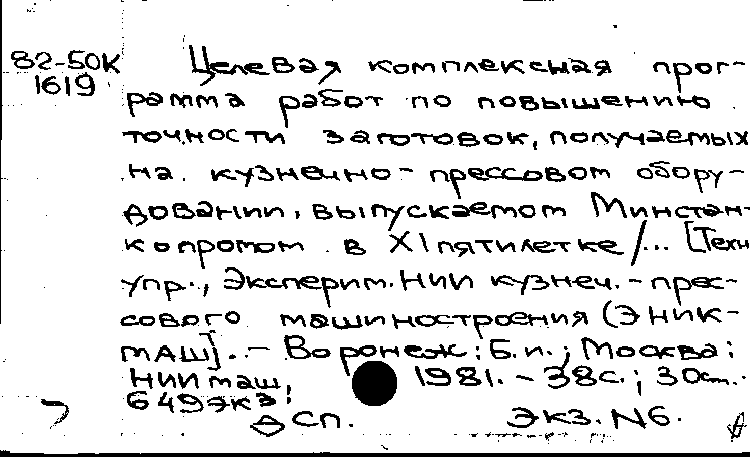 82-50К
1619
Целевая комплексная прог-
рамма работ по повышению
точности заготовок, получаемых
на кузнечно-прессовом обору-
довании, выпускаемом Минстан-
копромом в XI пятилетке /... [Техн.
упр., Эксперим. НИИ кузнеч.-прес-
сового машиностроения (ЭНИК-
МАШ]. - Воронеж: Б.и.; Москва:
НИИмаш, 1981. - 38с.; 30см.
649экз.
ДСП. Экз. N6.